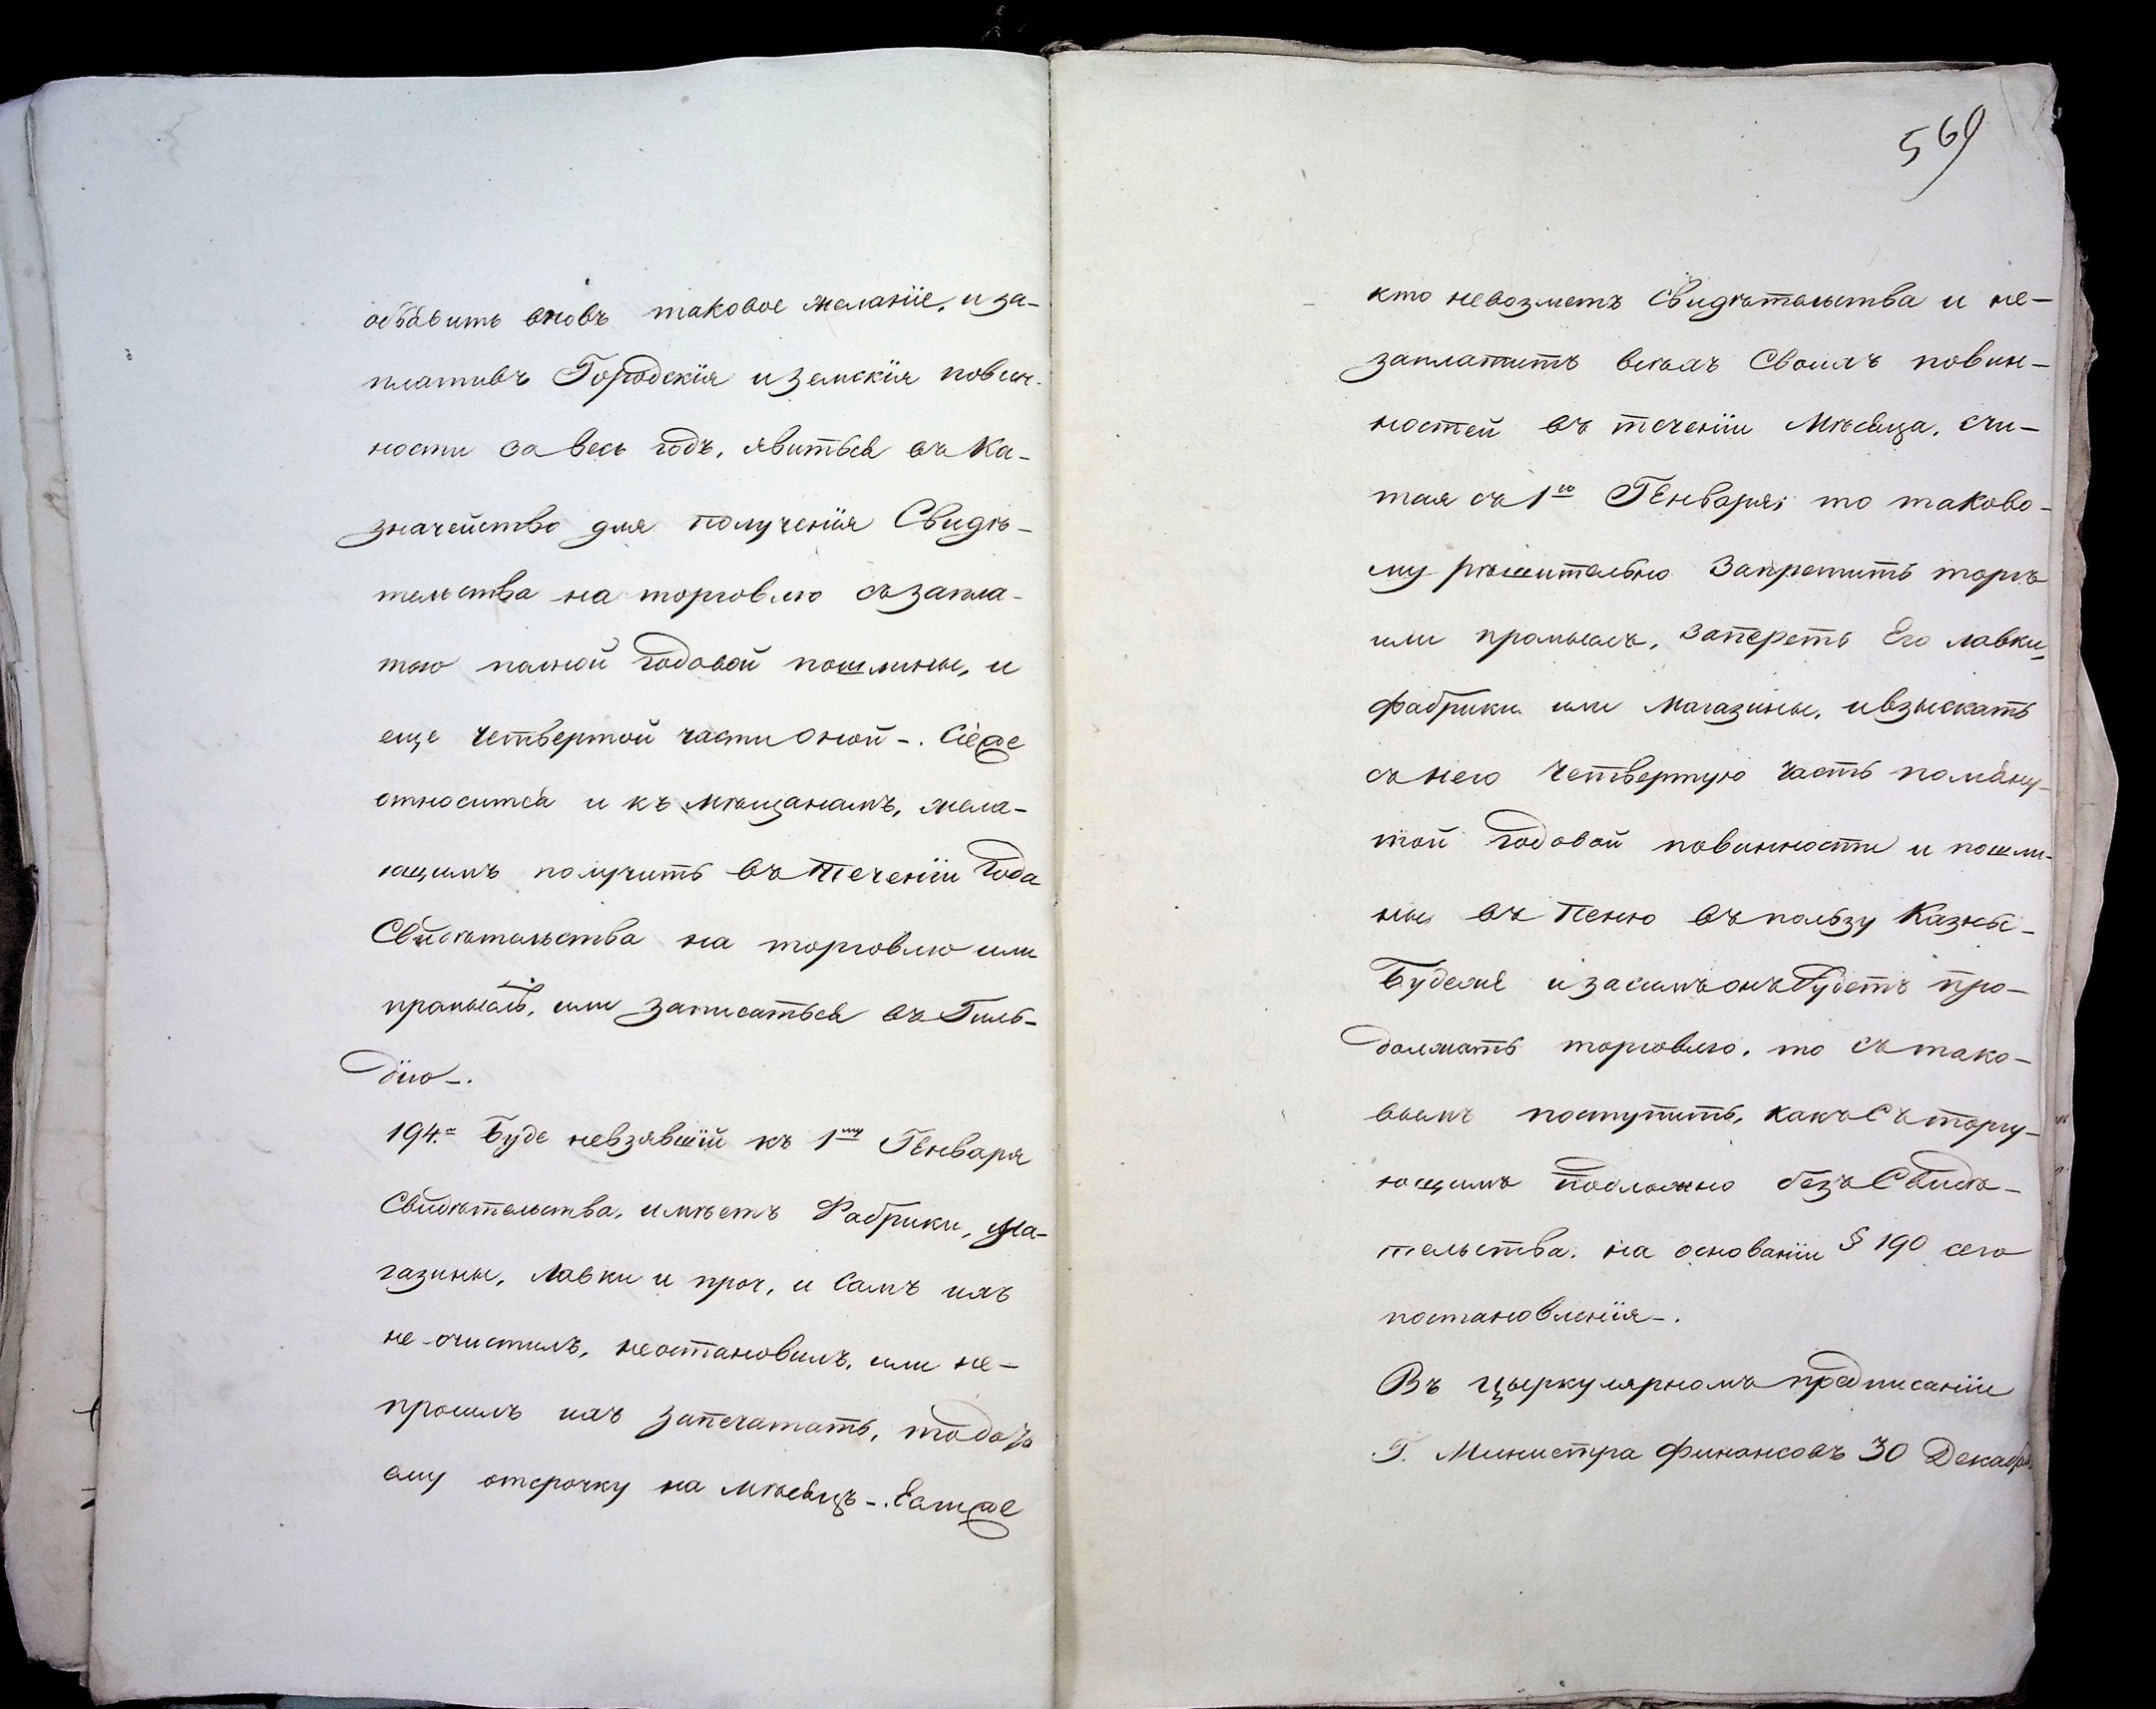 объавить вновь таковое желаніе, и за-
плативъ Городскія и земскія повин-
ности за весь годъ, явиться въ Ка-
значейство для полученія Свидѣ-
тельства на торговлю съ запла-
тою полной годовой пошлины, и
еще четвертой части оной-. Сіе же
относится и къ мѣщанамъ, жела-
ющимъ получить въ теченіи года
Свидѣтельства на торговлю или
промыслъ, или записаться въ Гиль-
дію-.
194.е Буде невзявшій къ 1му Генваря
Свидѣтельства, имѣетъ Фабрики, Ма-
газины, Лавки и проч, и самъ ихъ
не очистилъ, неостановилъ, или не-
просилъ ихъ запечатать, то дать
ему отсрочку на мѣсяцъ-. Естьже
569
кто невозметъ Свидѣтельства и не-
заплатитъ всѣхъ Своихъ повин-
ностей въ теченіи Мѣсяца, счи-
тая съ 1го Генваря; то таково-
му рѣшительно Запретить торгъ
или промыслъ, запереть Его лавки,
фабрики или Магазины, и взыскать
съ него четвертую часть помяну-
той годовой повинности и пошли-
ны въ пеню въ пользу Казны-
Будеже и засимъ онъ будетъ про-
должать торговлю, то съ тако-
вымъ поступить, какъ Съ торгу-
ющимъ подложно безъ Свидѣ-
тельства, на основаніи § 190 сего
постановленія-.
Въ Цыркулярномъ предписаніи
Г. Министра Финансовъ 30 Декабря,